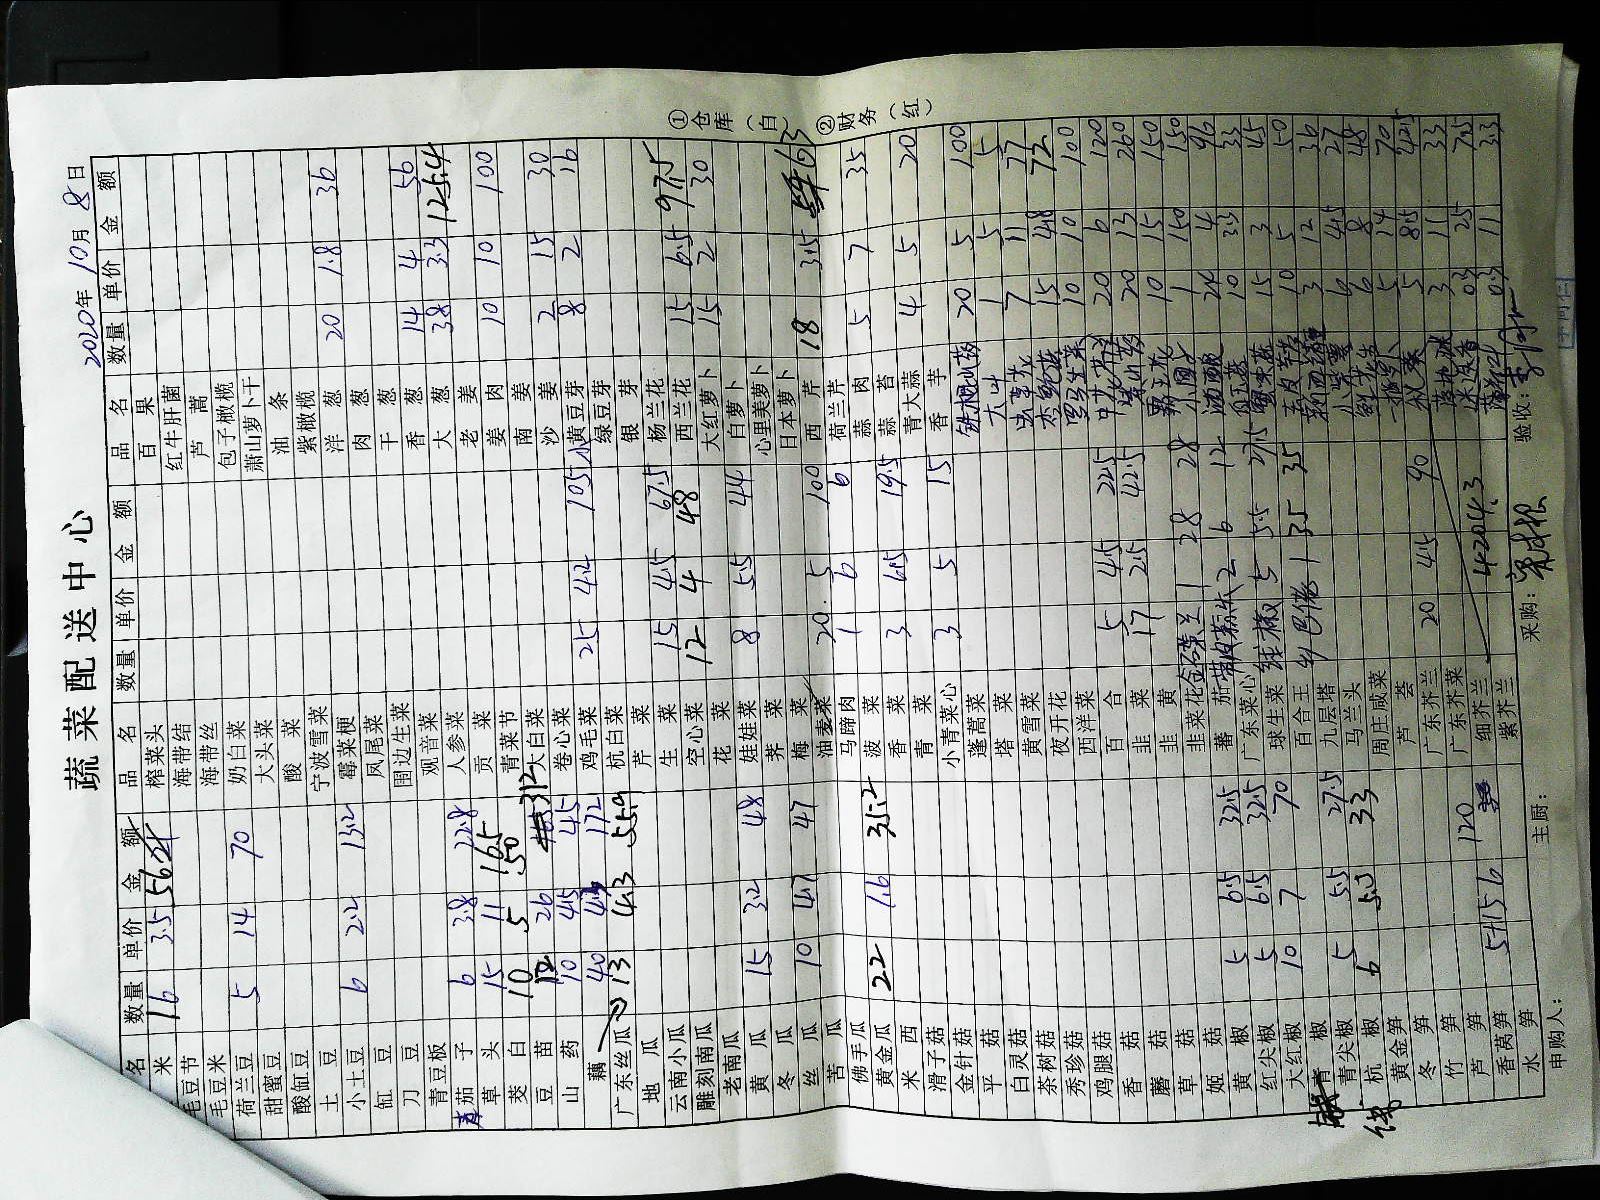 蔬菜配送中心
2020年 10月 8日
名 数量 单价 金额 品名 数量 单价 金额 品名 数量 单价 金额
米 16 3.5 56 榨菜头 百果
毛豆节 海带结 红牛肝菌
毛豆米 海带丝 芦蒿
荷兰豆 5 14 70 奶白菜 包子橄榄
甜蜜豆 大头菜 萧山萝卜干
酸缸豆 酸菜 油条
土豆 宁波雪菜 紫橄榄
小土豆 6 2.2 13.2 霉菜梗 洋葱 20 1.8 36
缸豆 凤尾菜 肉葱
刀豆 国边生菜 干葱
青豆板 观音菜 香葱 14 4 56
茄子 6 3.8 22.8 人参菜 大葱 38 3.3 125.4
草头 15 11 165 贡菜 老姜
茭白 10 5 50 青菜节 姜肉 10 10 100
豆苗 12 26 312 大白菜 南姜
山药 10 4.5 45 卷心菜 沙姜 2 15 30
藕 40 4.3 172 鸡毛菜 25 4.2 105 小黄豆芽 8 2 16
广东丝瓜 13 4.3 55.9 杭白菜 绿豆芽
地瓜 芹菜 银芽
云南小瓜 生菜 15 4.5 67.5 杨兰花
雕刻南瓜 空心菜 12 4 48 西兰花 15 6.5 97.5
老南瓜 花菜 大红萝卜 15 2 30
黄瓜 15 3.2 48 娃娃菜 8 5.5 44 白萝卜
冬瓜 荠菜 心里美萝卜
丝瓜 10 4.7 47 梅菜 日本萝卜
苦瓜 油麦菜 20 5 100 西芹 18 3.5 63
佛手瓜 马蹄肉 1 6 6 荷兰芹
黄金瓜 22 1.6 35.2 菠菜 蒜肉 5 7 35
米西 香菜 3 6.5 19.5 蒜苔
滑子菇 青菜 青大蒜 4 5 20
金针菇 小青菜心 3 5 15 香芋
平菇 蓬蒿菜 铁棍山药 20 5 100
白灵菇 塔菜 1 5 5
茶树菇 黄雪菜 7 11 77
秀珍菇 夜开花 15 4.8 72
鸡腿菇 西洋菜 罗马生菜 10 10 100
香菇 百合 5 4.5 22.5 20 6 120
蘑菇 韭菜 17 2.5 42.5 紫山药 20 13 260
草菇 韭黄 霸王花 10 15 150
姬菇 韭菜花 1 28 28 1 150 150
黄椒 5 6.5 32.5 蕃茄 2 6 12 24 4 96
红尖椒 5 6.5 32.5 广东菜心 线椒 5 5.5 27.5 10 3.3 33
大红椒 10 7 70 球生菜 1 35 35 15 3 45
青椒 百合王 10 5 50
青尖椒 5 5.5 27.5 九层塔 3 12 36
杭椒 6 5.5 33 马兰头 6 4.5 27
黄金笋 周庄咸菜 6 8 48
冬笋 芦荟 5 14 70
竹笋 广东芥兰 20 4.5 90 5 8.5 42.5
芦笋 120 广东芥菜 3 11 33
香莴笋 细芥兰 4204.3 0.3 25 7.5
水笋 紫芥兰 0.3 11 3.3
申购人： 主厨： 采购： 验收：
①仓库（白） ②财务（红）